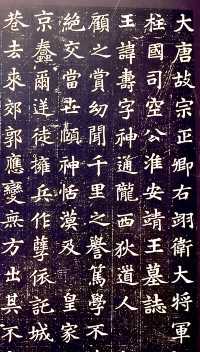 大唐故宗正卿右翊衛大將軍
柱國司空公淮安靖王墓誌
王諱壽字神通隴西狄道人
顧之賞幼聞千里之譽篤學不
絕交當世頤神恬漠及 皇家
京蠢爾逆徒擁兵作孽依託城
恭去來郊郭應變無方出其不